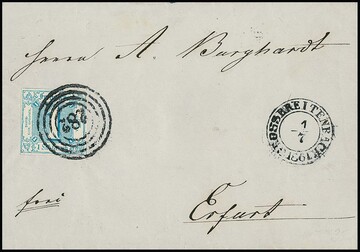 Herrn A. Burghardt
287
GROSSBREITENBACH
1
7
1861
frei
Erfurt